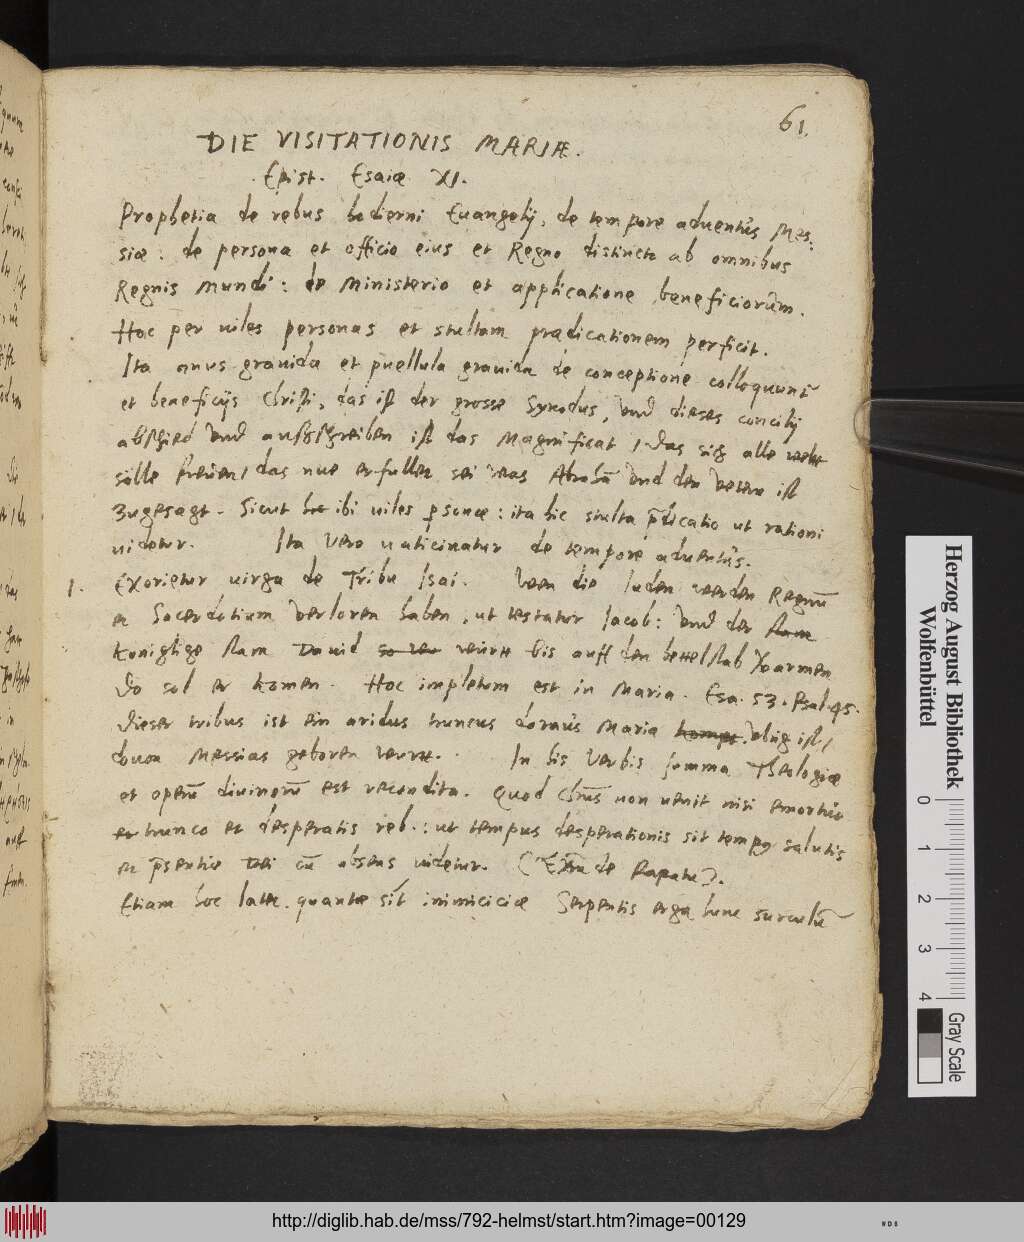 61.
DIE VISITATIONIS MARIÆ.
Epist. Esaiæ XI.
Prophetia de rebus hodierni Euangelij, de tempore aduentus Mes:
siæ: de persona et officio eius et Regno distincte ab omnibus
Regnis Mundi: de Ministerio et applicatione beneficiorum.
Hoc per uiles personas et stultam prædicationem perficit.
Ita anus grauida et puellula grauida de conceptione colloquunt
et beneficijs Christi, das ist der grosse Synodus, vnd dieses concilij
abschied vnd außschreiben ist das Magnificat / das sich alle
solle freuen / das nue erfullet sei was Abrahā vnd den vetern ist
zugesagt. Sicut ibi uiles psonæ: ita hic stulta p̄dicatio ut rationi
uidetur. Ita vero uaticinatur de tempore aduentus.
1. Exorietur uirga de Tribu Isai. Wen die Iuden werden Regnū
et Sacerdotium verloren haben, ut testatur Iacob: vnd der stam
konigliche stam Dauid so wurtt bis auff den bettelstab
Do sol er komen. Hoc impletum est in Maria. Esa. 53. Psal. 45.
Dieser tribus ist ein aridus truncus dorinus Maria vbrig ist /
douon Messias geboren wurtt. In his verbis summa Theologiæ
et operū diuinorū est recondita. Quod Chrūs non uenit nisi emortuo
trunco et desperatis reb.: ut tempus desperationis sit tempus salutis
et p̄sentiæ Dei cū absens uidetur. (Extra de Papatu).
Etiam hoc latet quantæ sīt inimiciciæ Serpentis erga hunc surculū
Herzog August Bibliothek
Wolfenbüttel
0 1 2 3 4
Gray Scale
http://diglib.hab.de/mss/792-helmst/start.htm?image=00129